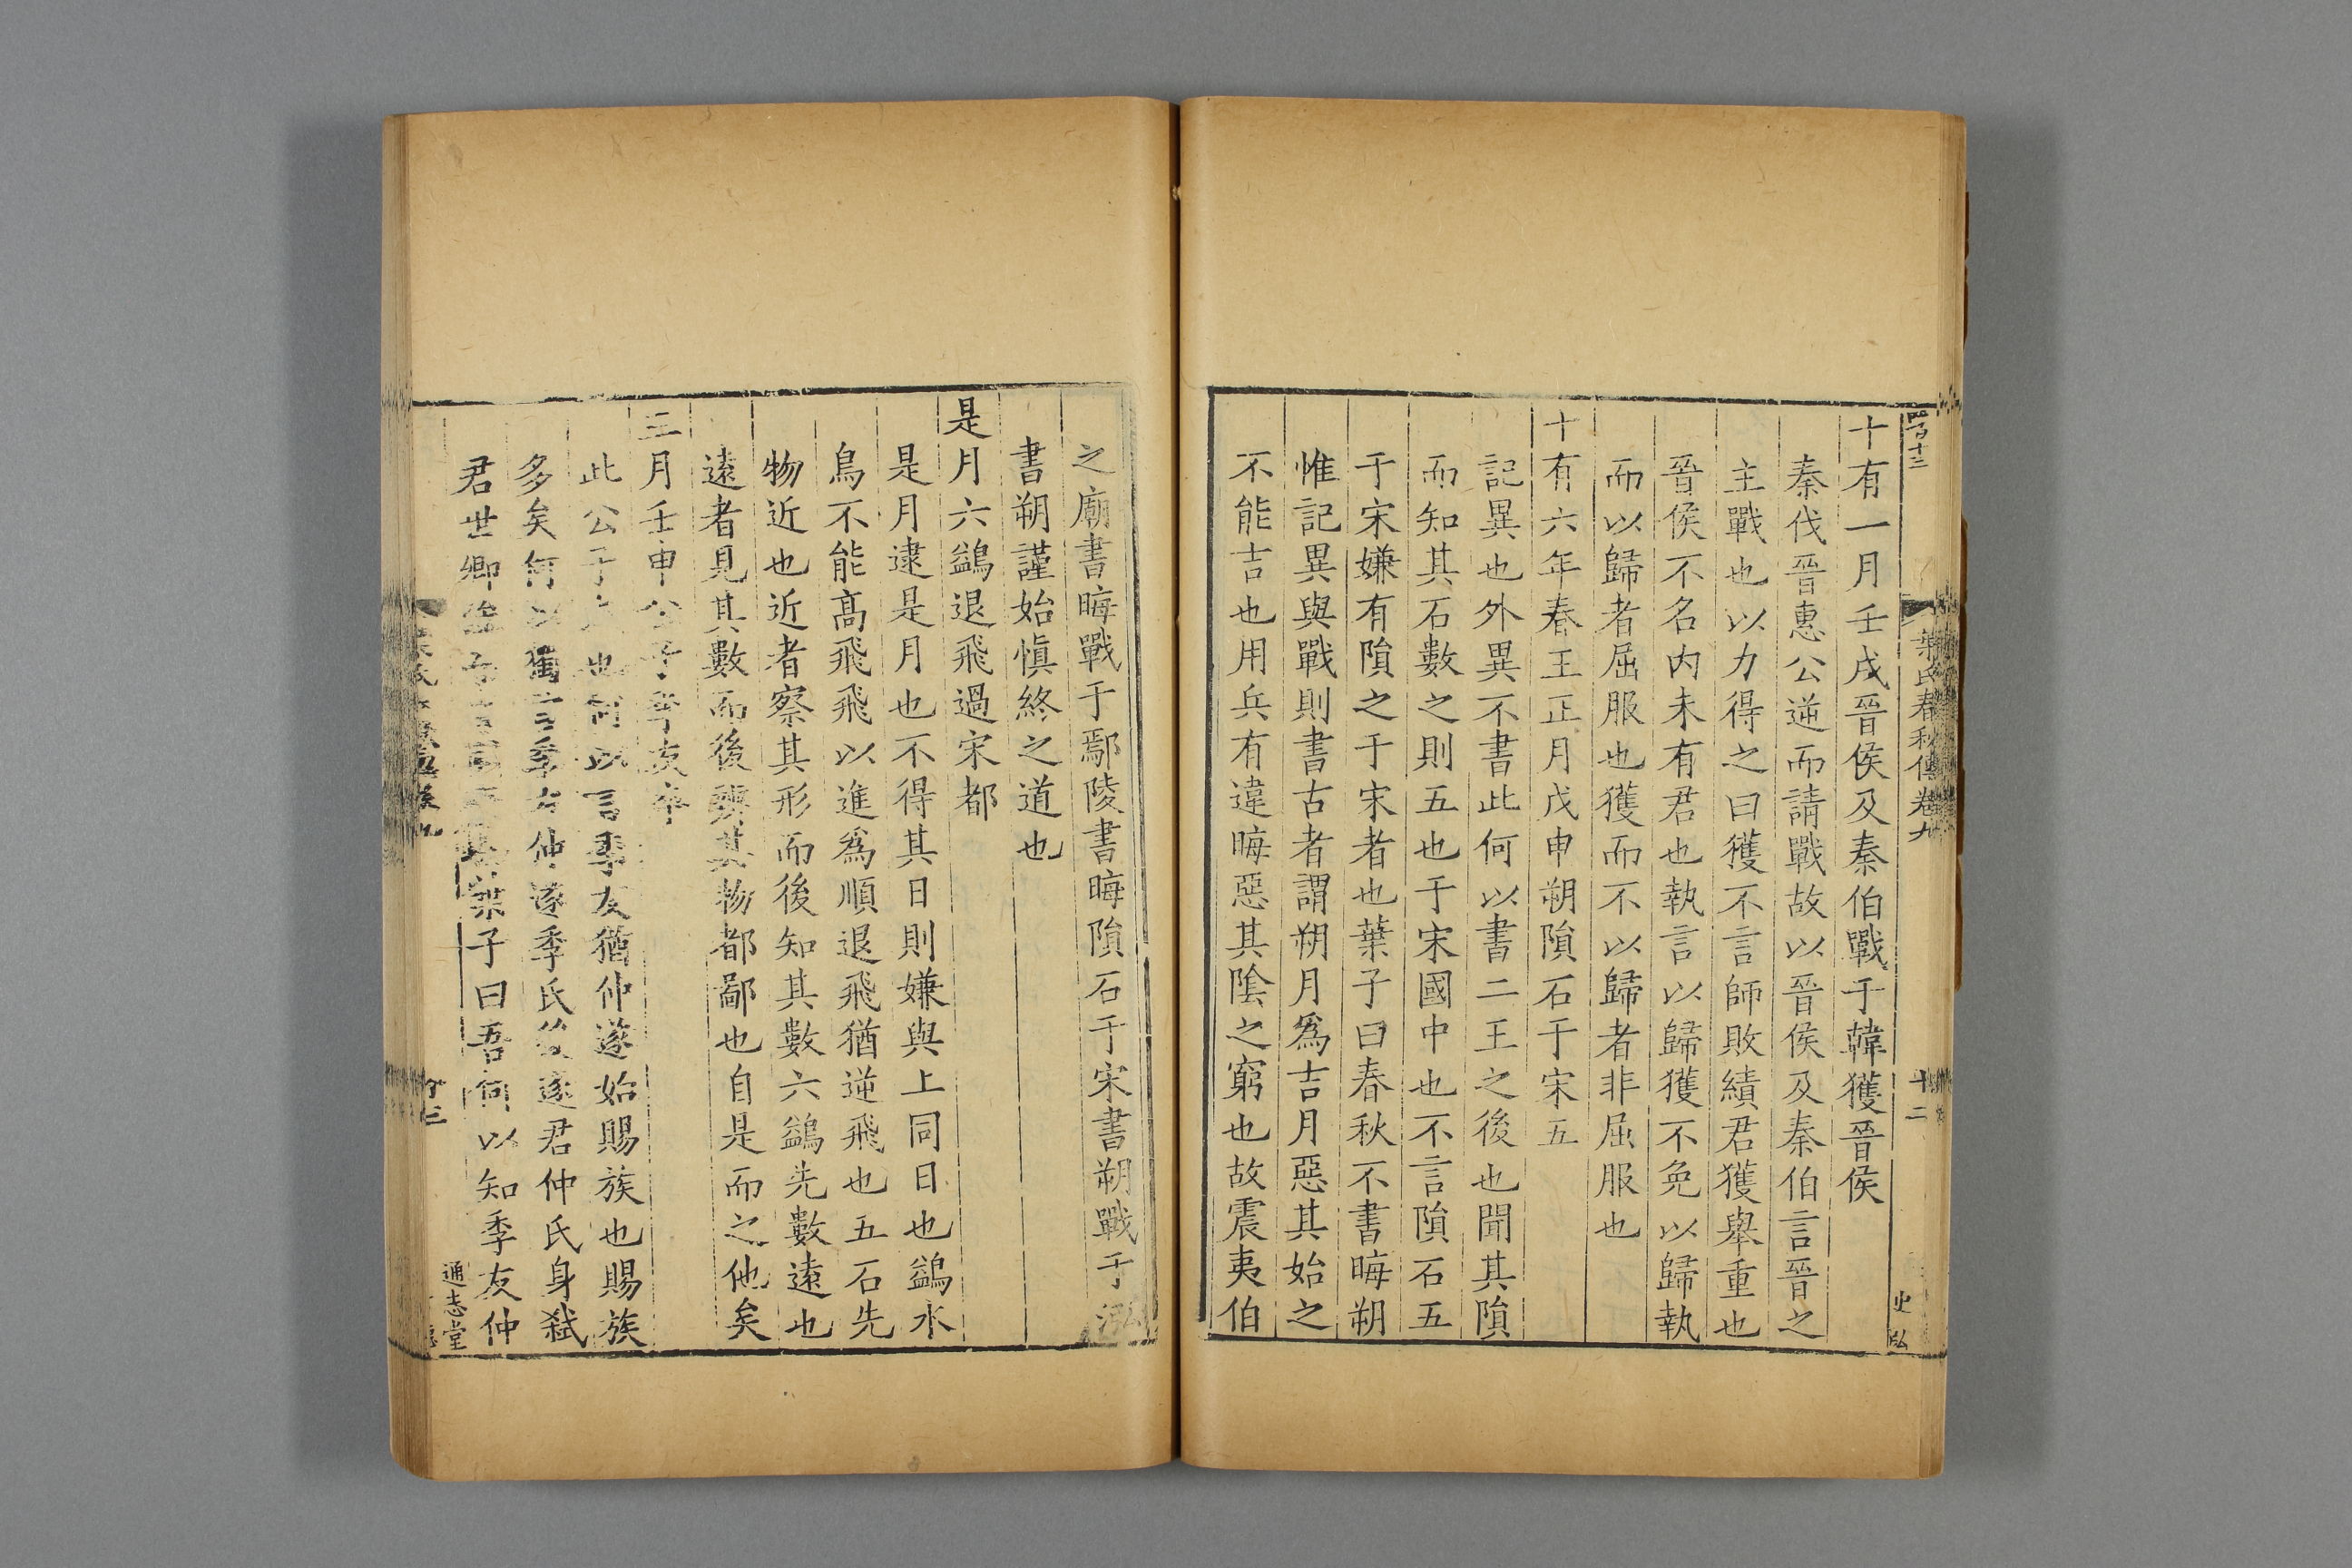 葉氏春秋傳卷九
十二
十有一月壬戌晉侯及秦伯戰于韓獲晉侯
秦伐晉惠公逆而請戰故以晉侯及秦伯言晉之
主戰也以力得之曰獲不言師敗績君獲舉重也
晉侯不名内未有君也執言以歸獲不免以歸執
而以歸者屈服也獲而不以歸者非屈服也
十有六年春王正月戊申朔隕石于宋五
記異也外異不書此何以書二王之後也聞其隕
而知其石數之則五也于宋國中也不言隕石五
于宋嫌有隕之于宋者也葉子曰春秋不書晦朔
惟記異與戰則書古者謂朔月爲吉月惡其始之
不能吉也用兵有違晦惡其陰之窮也故震夷伯
之廟書晦戰于鄢陵書晦隕石于宋書朔戰于泓
書朔謹始愼終之道也
是月六鷁退飛過宋都
是月逮是月也不得其日則嫌與上同日也鷁水
鳥不能高飛飛以進爲順退飛猶逆飛也五石先
物近也近者察其形而後知其數六鷁先數遠也
遠者見其數而後辨其物都鄙也自是而之他矣
三月壬申公子季友卒
此公子也何以言季友猶仲遂始賜族也賜族
多矣何以獨言季友仲遂季氏逐君仲氏身弑
君世卿葉子曰吾何以知季友仲
通志堂